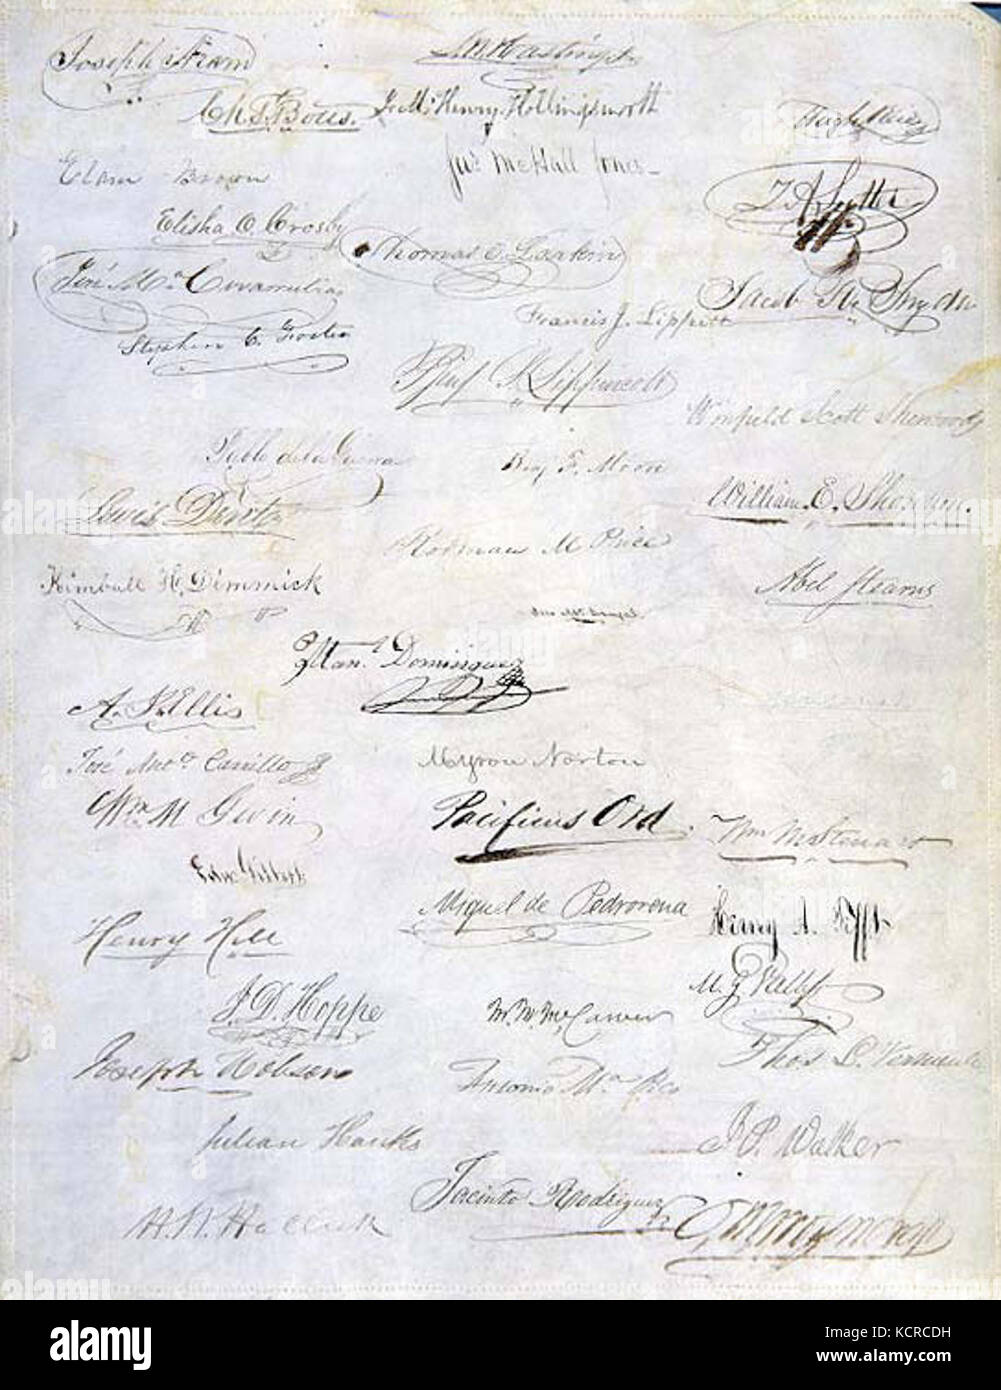 Joseph Aram
Chs. T. Botts.
Elam Brown
Elisha O. Crosby
José Ma. Covarrubias
Stephen C. Foster
Pablo de la Guerra
Lewis Dent
Kimball H. Dimmick
A. J. Ellis
José Anto. Carrillo
Wm M Gwin
Edw. Gilbert
Henry Hill
J. D. Hoppe
Joseph Hobson
Julian Hanks
H. W. Halleck
L. W. Hastings
J. McHenry Hollingsworth
Jas. McHall Jones
Thomas O. Larkin
Francis J. Lippitt
Benj S. Lippincott
Benj F. Moore
Rodman M Price
Man. Dominguez
Myron Norton
Pacificus Ord
Miguel de Pedrorena
M. M. McCarver
Antonio Ma. Pico
Jacinto Rodriguez
Hugh Reid
J A Sutter
Jacob R. Snyder
Winfield Scott Sherwood
William. E. Shannon.
Abel Stearns
Wm M Steuart
Henry A. Tefft
M. G. Vallejo
Thos L. Vermeule
J. P. Walker
O. M. Wozencraft
alamy
Image ID: KCRCDH
www.alamy.com